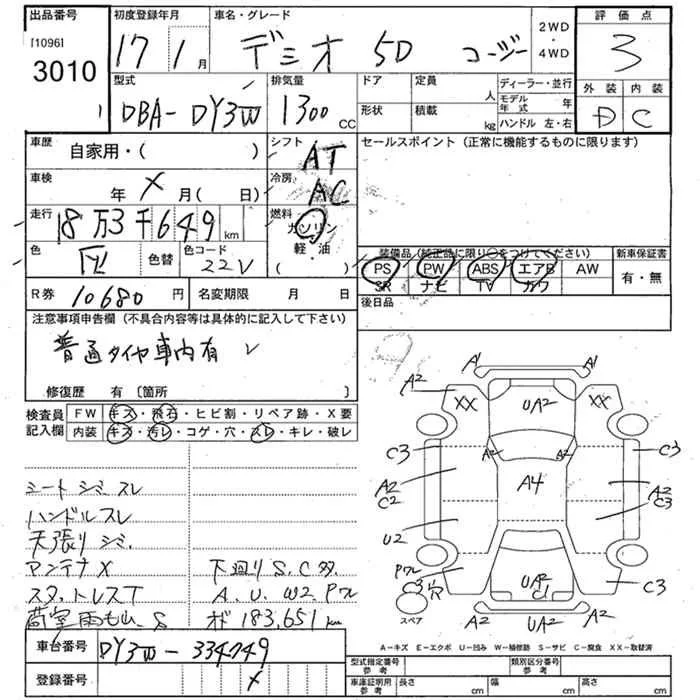 出品番号 初度登録年月 車名・グレード 2WD・4WD 評価点
[1096]
3010 17 1月 デミオ 5D コージー 3
型式 排気量 ドア 定員 人 ディーラー・並行 外装 内装
DBA-DY3W 1300cc 形状 積載 kg モデル年式 年 D C
ハンドル 左・右
車歴 自家用・( ) シフト AT セールスポイント (正常に機能するものに限ります)
車検 年 X 月( 日) 冷房 AC
走行 18万3千649km 燃料 ガソリン
軽・油
( )
色 色替 色コード 22V
装備品 (純正品に限り○をつけてください) 新車保証書
PS PW ABS エアB AW 有・無
SR ナビ TV カワ
R券 10680円 名変期限 月 日 後日品
注意事項申告欄 (不具合内容等は具体的に記入して下さい)
普通タイヤ車内有
修復歴 有 [箇所 ]
検査員記入欄 FW キズ・飛石・ヒビ割・リペア跡・X要
内装 キズ・汚レ・コゲ・穴・スレ・キレ・破レ
シート シミ スレ
ハンドルスレ
天張りシミ
アンテナX 下廻りS.C多
スタ、トレスT A.U.W2 Pワレ
荷室雨もれ.S オド183,651km
A1 A1
A2 XX UA2 XX A2
C3 A2 A2 C3
A2 C2 A4 A2 C3
U2
Pワレ C3 UA2 C1 C3
A2 UA2 A2
スペア
A-キズ E-エクボ U-凹み W-補修跡 S-サビ C-腐食 XX-取替済
車台番号 DY3W-334749
登録番号 X
型式指定番号 参考 類別区分番号 参考
車庫証明用 参考 長さ cm 幅 cm 高さ cm